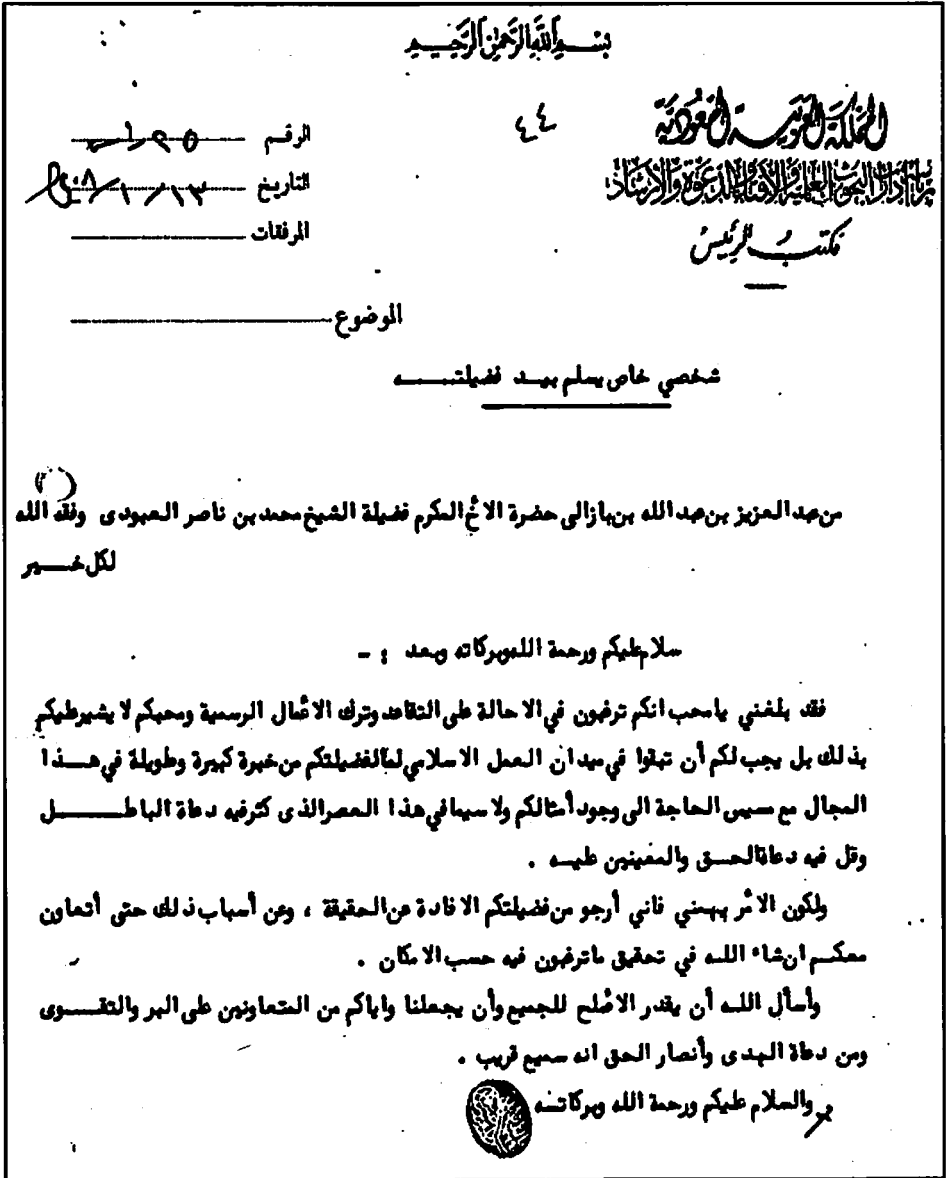 بسم الله الرحمن الرحيم
المملكة العربية السعودية
٤٤
رئاسة ادارات البحوث العلمية والافتاء والدعوة والارشاد
مكتب الرئيس
الرقم
التاريخ ١٣ / ١ / ١٤٠٨
المرفقات
الموضوع
شخصي خاص يسلم بيد فضيلته
من عبد العزيز بن عبد الله بن باز الى حضرة الأخ المكرم فضيلة الشيخ محمد بن ناصر العبودى وفقه الله
لكل خير
سلام عليكم ورحمة الله وبركاته وبعد : -
فقد بلغني يامحب انكم ترغبون في الاحالة على التقاعد وترك الأعمال الرسمية ومحبكم لا يشير عليكم
بذلك بل يجب لكم أن تبقوا في ميدان العمل الاسلامي لما لفضيلتكم من خبرة كبيرة وطويلة في هذا
المجال مع مسيس الحاجة الى وجود أمثالكم ولا سيما في هذا العصر الذى كثر فيه دعاة الباطل
وقل فيه دعاة الحق والمعينين عليه .
ولكون الأمر يهمني فاني أرجو من فضيلتكم الافادة عن الحقيقة ، وعن أسباب ذلك حتى أتعاون
معكم ان شاء الله في تحقيق ماترغبون فيه حسب الامكان .
وأسأل الله أن يقدر الأصلح للجميع وأن يجعلنا واياكم من المتعاونين على البر والتقوى
ومن دعاة الهدى وأنصار الحق انه سميع قريب .
والسلام عليكم ورحمة الله وبركاته